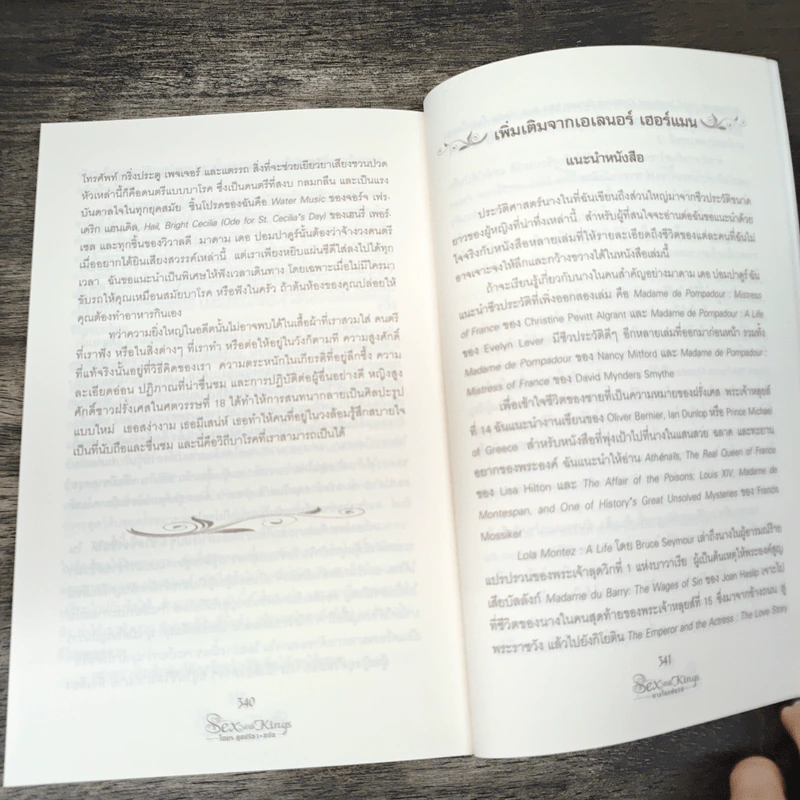 โทรศัพท์ กริ่งประตู เพจเจอร์ และแตรรถ สิ่งที่จะช่วยเยียวยาเสียงชวนปวด
หัวเหล่านี้ก็คือดนตรีแบบบาโรค ซึ่งเป็นดนตรีที่สงบ กลมกลืน และเป็นแรง
บันดาลใจในทุกยุคสมัย ชิ้นโปรดของฉันคือ Water Music ของจอร์จ เฟร-
เดริก แฮนเดิล, Hail, Bright Cecilia (Ode for St. Cecilia's Day) ของเฮนรี่ เพอร์
เซล และทุกชิ้นของวิวาลดี มาดาม เดอ ปอมปาดูร์นั้นต้องว่าจ้างวงดนตรี
เมื่ออยากได้ยินเสียงสวรรค์เหล่านี้ แต่เราเพียงหยิบแผ่นซีดีใส่ลงไปได้ทุก
เวลา ฉันขอแนะนำเป็นพิเศษให้ฟังเวลาเดินทาง โดยเฉพาะเมื่อไม่มีใครมา
ขับรถให้คุณเหมือนสมัยบาโรค หรือฟังในครัว ถ้าต้นห้องของคุณปล่อยให้
คุณต้องทำอาหารกินเอง
ทว่าความยิ่งใหญ่ในอดีตนั้นไม่อาจพบได้ในเสื้อผ้าที่เราสวมใส่ ดนตรี
ที่เราฟัง หรือในสิ่งต่างๆ ที่เราทำ หรือต่อให้อยู่ในวังก็ตามที ความสูงศักดิ์
ที่แท้จริงนั้นอยู่ที่วิธีคิดของเรา ความตระหนักในเกียรติที่อยู่ลึกซึ้ง ความ
ละเอียดอ่อน ปฏิภาณที่น่าชื่นชม และการปฏิบัติต่อผู้อื่นอย่างดี หญิงสูง
ศักดิ์ชาวฝรั่งเศสในศตวรรษที่ 18 ได้ทำให้การสนทนากลายเป็นศิลปะรูป
แบบใหม่ เธอสง่างาม เธอมีเสน่ห์ เธอทำให้คนที่อยู่ในวงล้อมรู้สึกสบายใจ
เป็นที่นับถือและชื่นชม และนี่คือวิถีบาโรคที่เราสามารถเป็นได้
340
Sex with Kings
เพิ่มเติมจากเอเลนอร์ เฮอร์แมน
แนะนำหนังสือ
ประวัติศาสตร์นางในที่ฉันเขียนถึงส่วนใหญ่มาจากชีวประวัติขนาด
ยาวของผู้หญิงที่น่าทึ่งเหล่านี้ สำหรับผู้ที่สนใจจะอ่านต่อฉันขอแนะนำด้วย
ใจจริงกับหนังสือหลายเล่มที่ให้รายละเอียดถึงชีวิตของแต่ละคนที่ฉันไม่
อาจเจาะจงให้ลึกและกว้างขวางได้ในหนังสือเล่มนี้
ถ้าจะเรียนรู้เกี่ยวกับนางในคนสำคัญอย่างมาดาม เดอ ปอมปาดูร์ ฉัน
แนะนำชีวประวัติที่เพิ่งออกสองเล่ม คือ Madame de Pompadour : Mistress
of France ของ Christine Pevitt Algrant และ Madame de Pompadour : A Life
ของ Evelyn Lever มีชีวประวัติดีๆ อีกหลายเล่มที่ออกมาก่อนหน้า รวมทั้ง
Madame de Pompadour ของ Nancy Mitford และ Madame de Pompadour :
Mistress of France ของ David Mynders Smythe
เพื่อเข้าใจชีวิตของชายที่เป็นความหมายของฝรั่งเศส พระเจ้าหลุยส์
ที่ 14 ฉันแนะนำงานเขียนของ Oliver Bernier, Ian Dunlop หรือ Prince Michael
of Greece สำหรับหนังสือที่พุ่งเป้าไปที่นางในแสนสวย ฉลาด และทะยาน
อยากของพระองค์ ฉันแนะนำให้อ่าน Athénaïs, The Real Queen of France
ของ Lisa Hilton และ The Affair of the Poisons; Louis XIV, Madame de
Montespan, and One of History's Great Unsolved Mysteries ของ Francis
Mossiker
Lola Montez : A Life โดย Bruce Seymour เล่าถึงนางในผู้อารมณ์ร้าย
แปรปรวนของพระเจ้าลุดวิกที่ 1 แห่งบาวาเรีย ผู้เป็นต้นเหตุให้พระองค์สูญ
เสียบัลลังก์ Madame du Barry: The Wages of Sin ของ Joan Haslip เจาะไป
ที่ชีวิตของนางในคนสุดท้ายของพระเจ้าหลุยส์ที่ 15 ซึ่งมาจากข้างถนน สู่
พระราชวัง แล้วไปยังกิโยติน The Emperor and the Actress : The Love Story
341
Sex with Kings